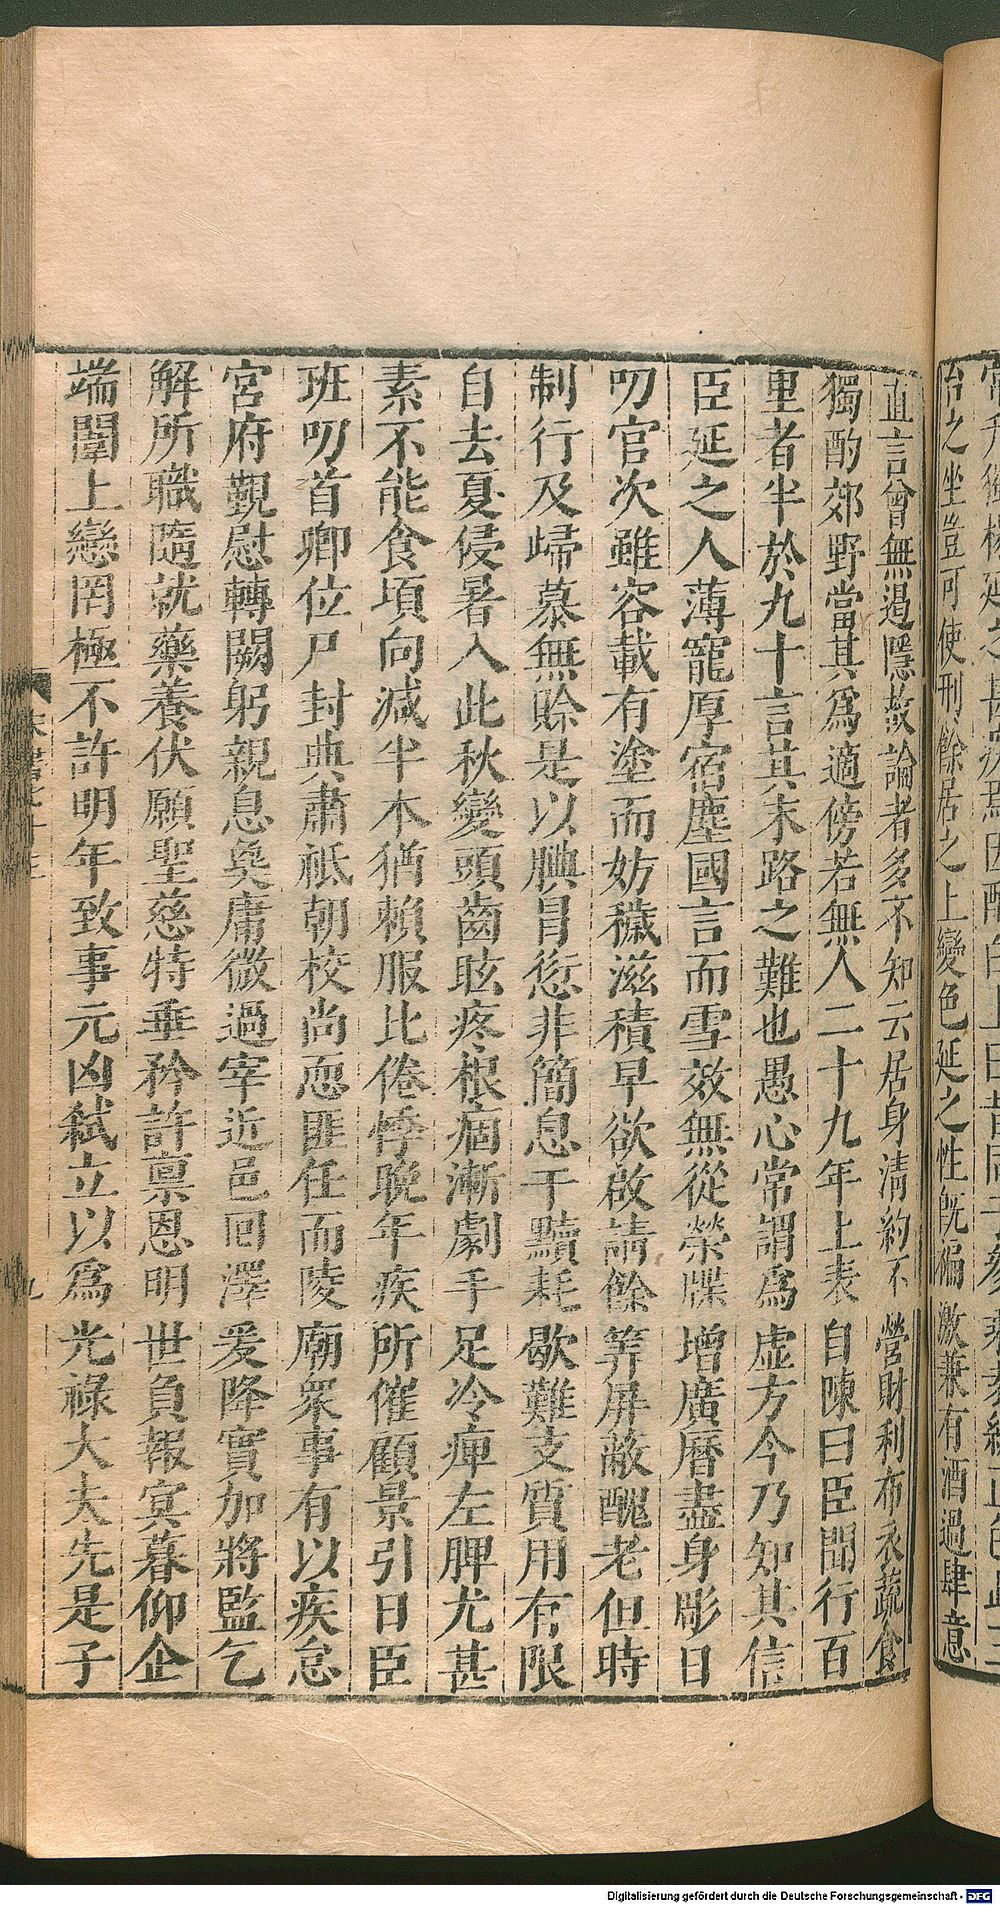 怡之坐豈可使刑餘居之上變色延之性旣褊激兼有酒過肆意
直言曾無遏隱故論者多不知云居身淸約不營財利布衣蔬食
獨酌郊野當其爲適傍若無人二十九年上表自陳曰臣聞行百
里者半於九十言其末路之難也愚心常謂爲虛方今乃知其信
臣延之人薄寵厚宿塵國言而雪效無從榮牒增廣曆盡身彫日
叨官次雖容載有塗而妨穢滋積早欲啟請餘筭屏蔽醜老但時
制行及歸慕無賖是以腆冒愆非簡息干黷耗歇難支質用有限
自去夏侵暑入此秋變頭齒眩疼根痼漸劇手足冷痺左胛尤甚
素不能食頃向減半本猶賴服比倦悸晚年疾所催顧景引日臣
班叨首卿位尸封典肅祗朝校尚恧匪任而陵廟衆事有以疾怠
宮府覲慰轉闕躬親息㚟庸微過宰近邑回澤爰降實加將監乞
解所職隨就藥養伏願聖慈特垂矜許禀恩明世負報冥暮仰企
端闈上戀罔極不許明年致事元凶弑立以爲光祿大夫先是子
九
Digitalisierung gefördert durch die Deutsche Forschungsgemeinschaft - DFG